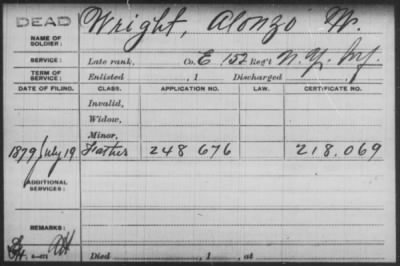 DEAD Wright, Alonzo W.
NAME OF SOLDIER:
SERVICE: Late rank, Co. E 152 Reg't N.Y. Inf.
TERM OF SERVICE: Enlisted , 1 Discharged , 1
DATE OF FILING. CLASS. APPLICATION NO. LAW. CERTIFICATE NO.
Invalid,
Widow,
Minor,
1879 July 19 Father 248 676 218.069
ADDITIONAL SERVICES:
REMARKS:
Died , 1 , at